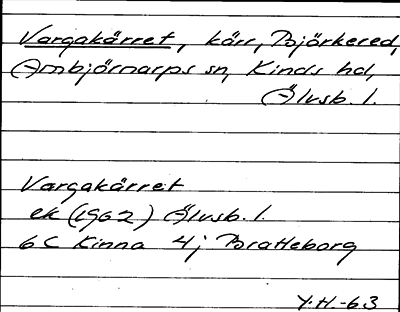 Vargakärret, kärr, Björkered,
Ambjörnarps sn, Kinds hd,
Älvsb. l.
Vargakärret
ek (1962) Älvsb. l.
6C Kinna 4j Brattleborg
Y.H.-63